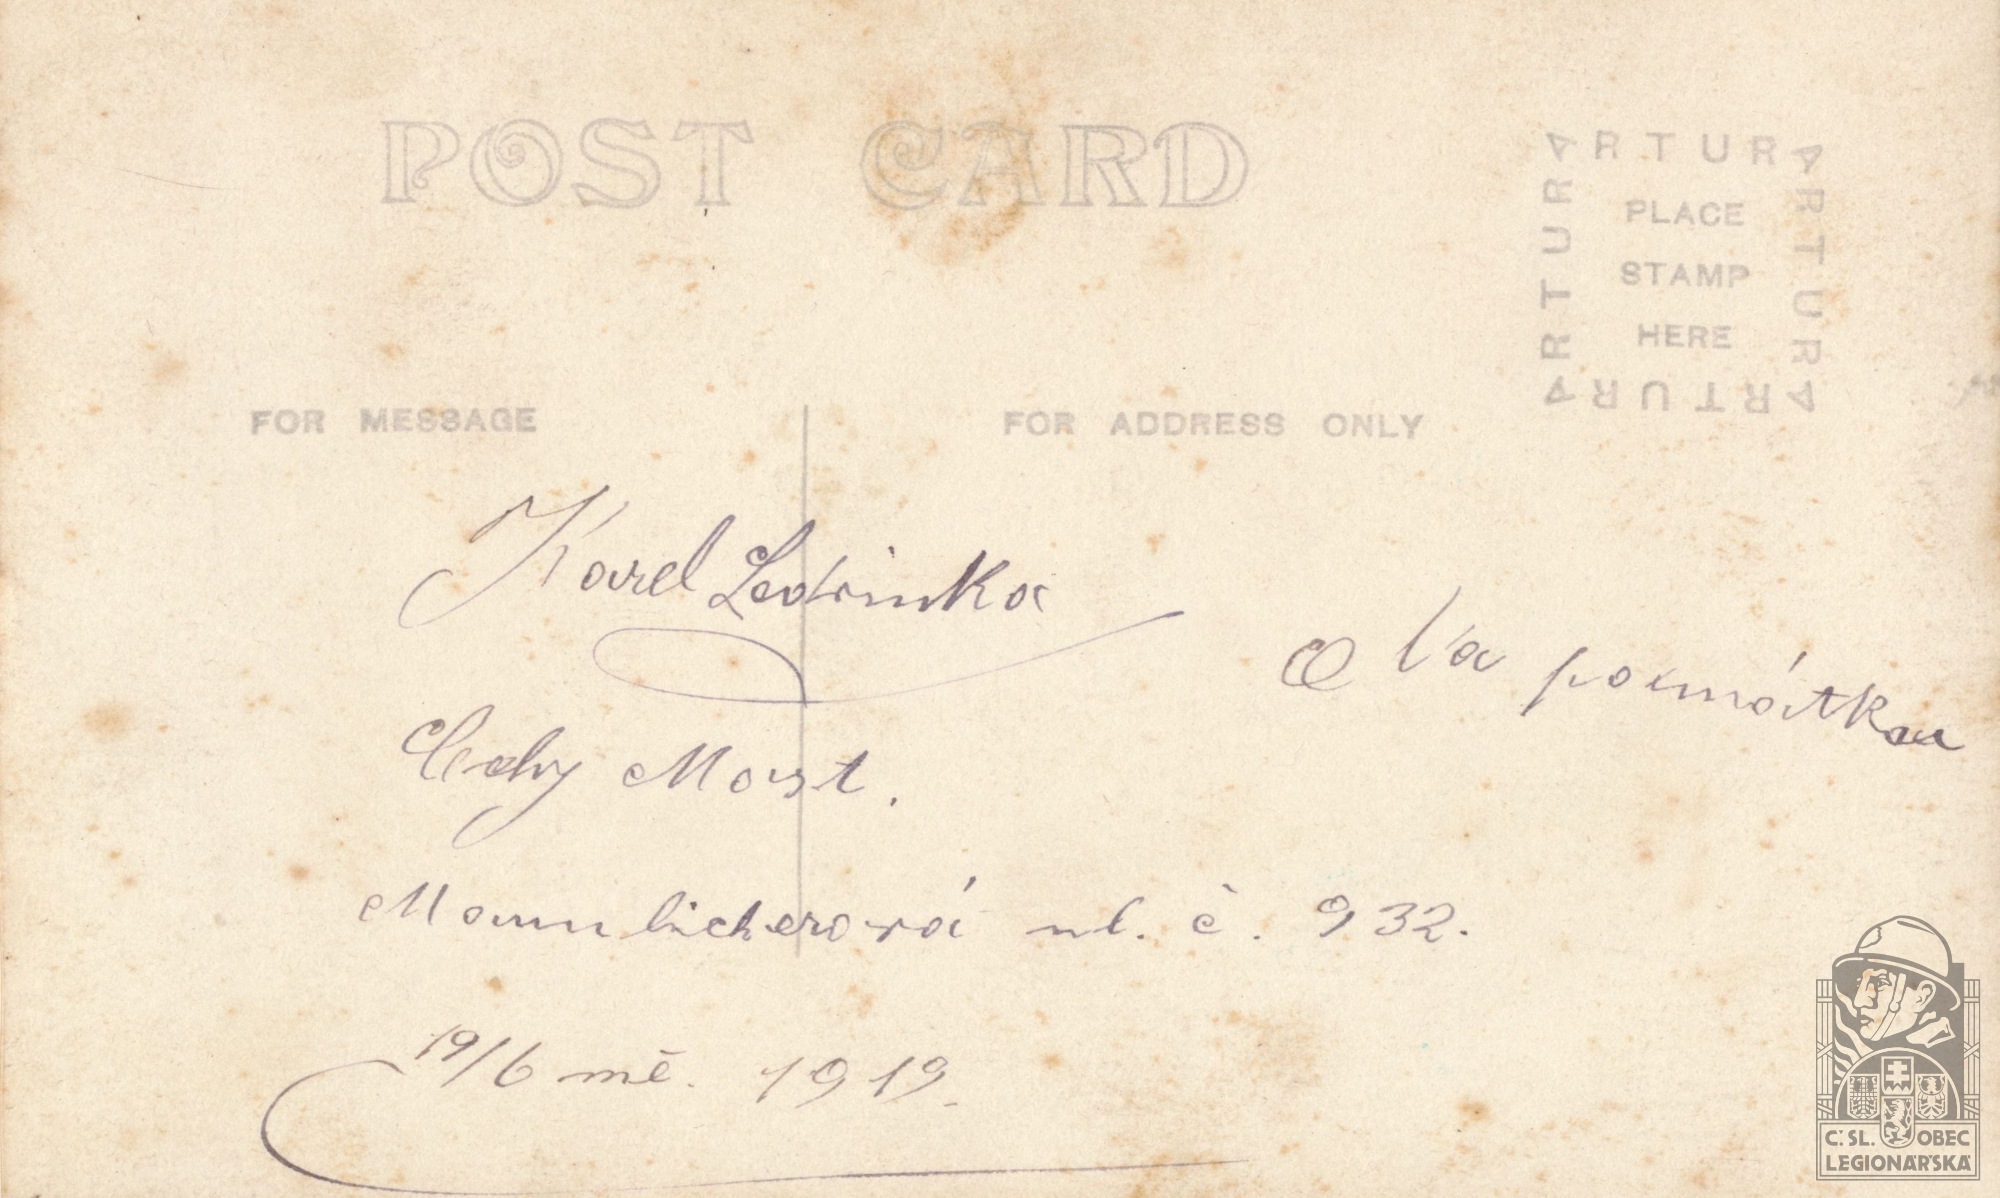 POST CARD
ARTURA
ARTURA
ARTURA
ARTURA
PLACE
STAMP
HERE
FOR MESSAGE
FOR ADDRESS ONLY
Karel Ledvinka
Na pomátkau
Čechy Most.
ul. č. 932.
19/6 mě. 1919.
Č.SL. OBEC
LEGIONÁŘSKÁ